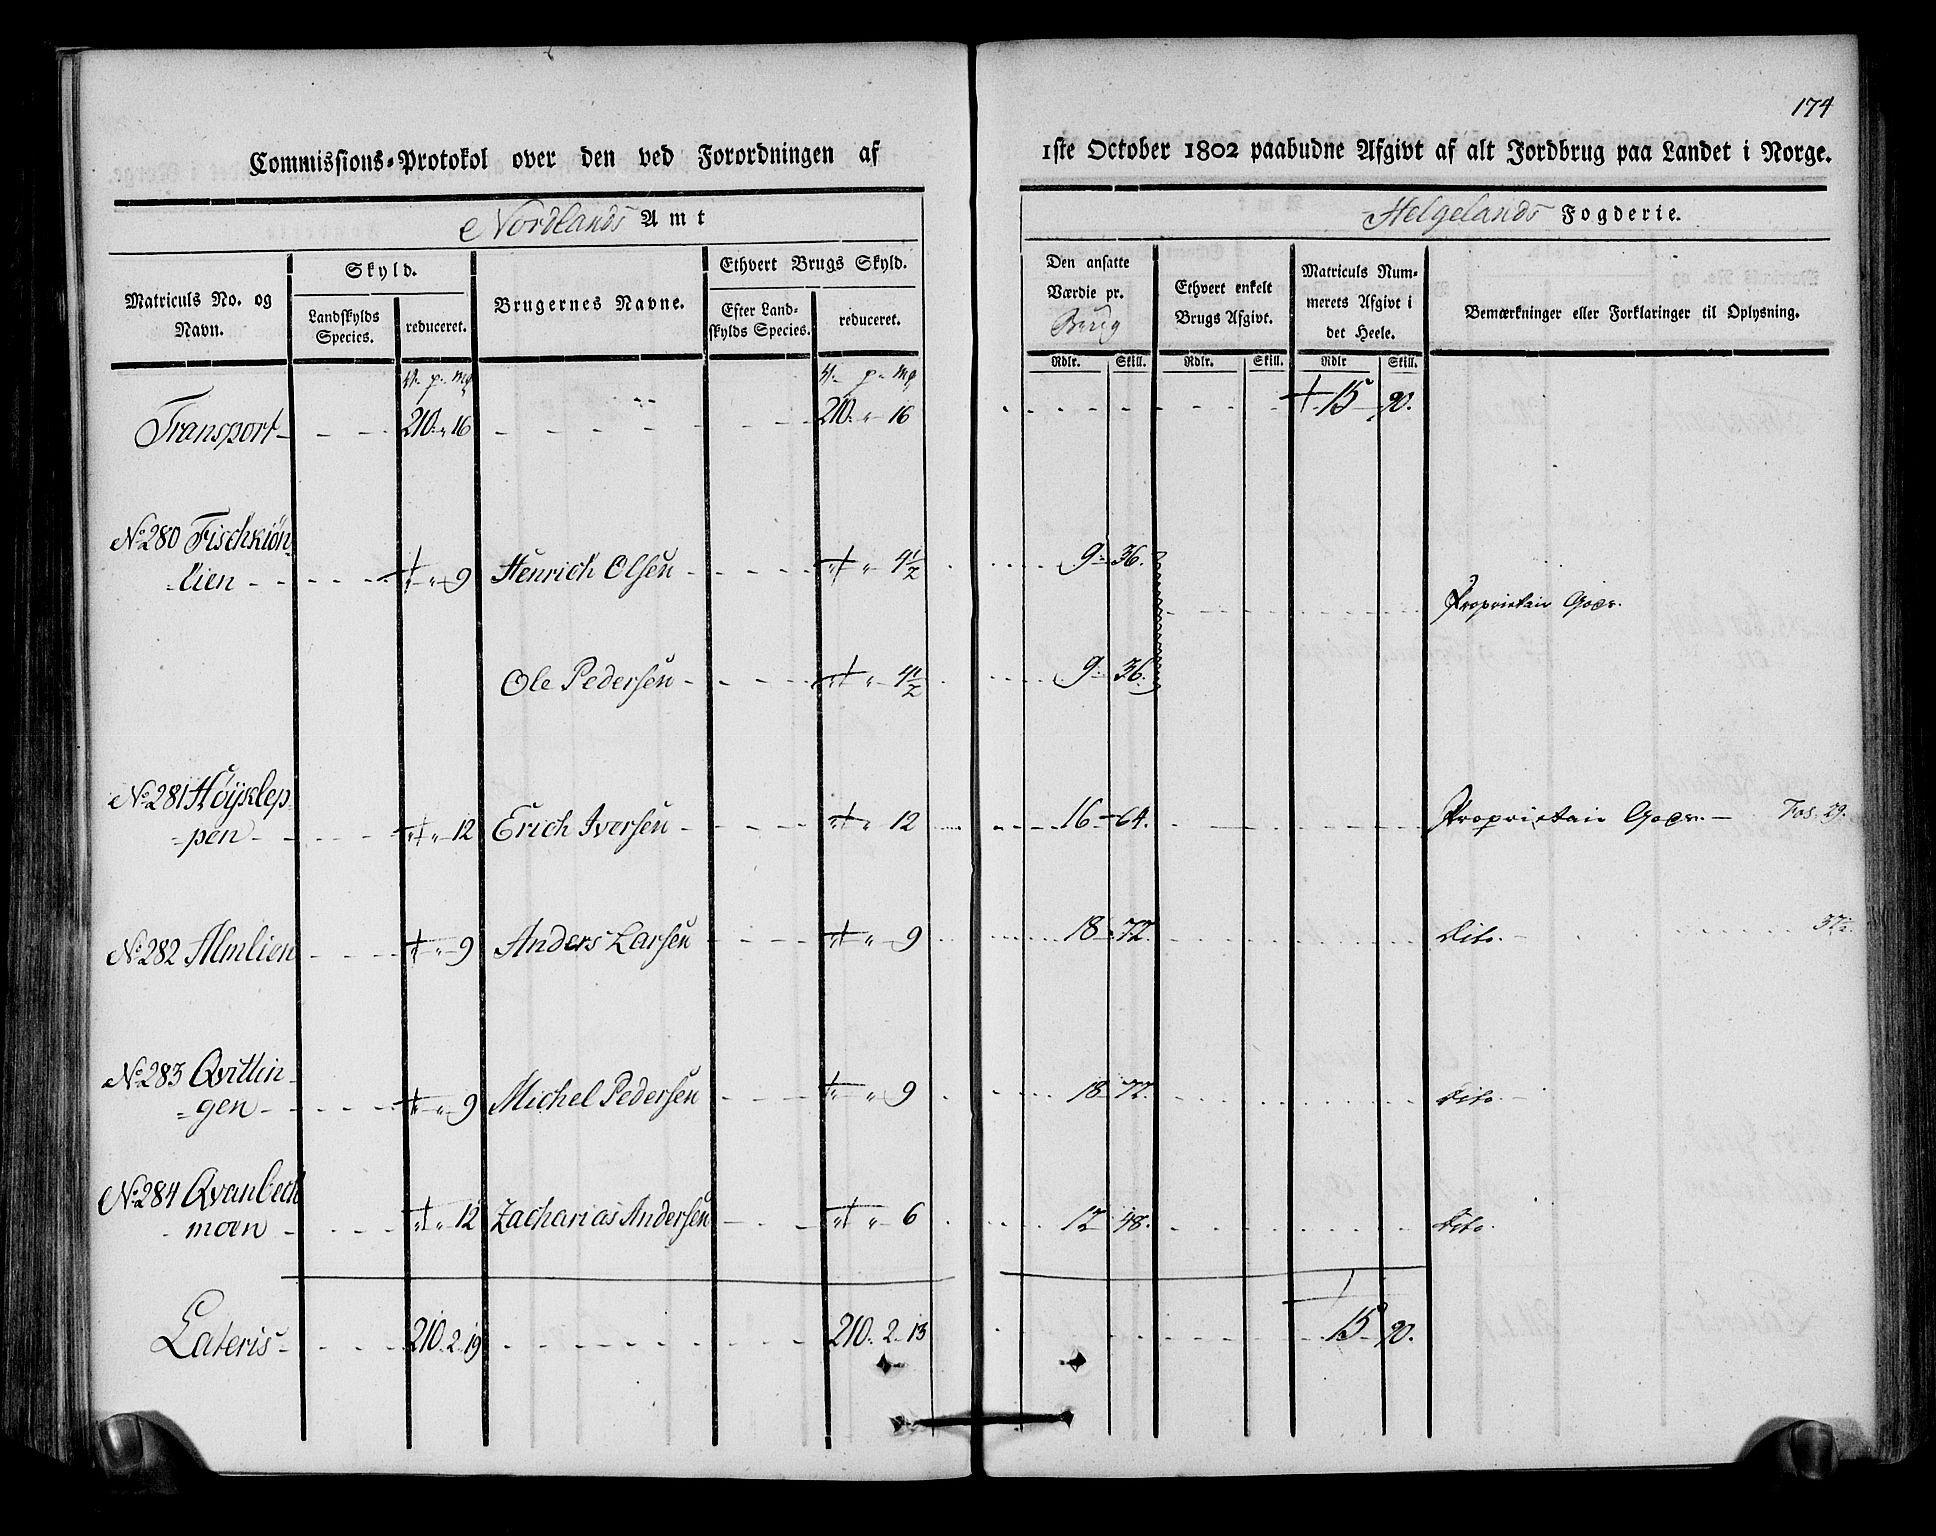 174
Commissions-Protokol over den ved Forordningen af
1ste October 1802 paabudne Afgivt af alt Jordbrug paa Landet i Norge.
Nordlands Amt
Helgelands Fogderie.
Matriculs No. og Navn.
Skyld.
Landskylds Species.
reduceret.
Brugernes Navne.
Ethvert Brugs Skyld.
Efter Landskylds Species.
reduceret.
Den ansatte Værdie pr. Brug
Ethvert enkelt Brugs Afgivt.
Matriculs Nummerets Afgivt i det Heele.
Bemærkninger eller Forklaringer til Oplysning.
Rdlr. Skill. Rdlr. Skill. Rdlr Skill.
V. p. mp V. p. mp
Transport 210. " 16 210. " 16 15 90.
No 280 Fischkiön-
lien " " 9 Henrich Olsen " " 4 1/2 9 36.
Proprietair Gods.
Ole Pedersen " " 4 1/2 9 36.
No 281 Höÿklep-
pen " " 12 Erich Iversen " " 12 16 64. Proprietair Gods. Fos. 29.
No 282 Almlien " " 9 Anders Larsen " " 9 18 72. Dito.
No 283 Qvitlin-
gen " " 9 Michel Pedersen " " 9 18 72. Dito.
No 284 Qvanbech
moen " " 12 Zacharias Andersen " " 6 12 48. Dito.
Lateris 210. 2. 19 210. 2. 13 15 90.